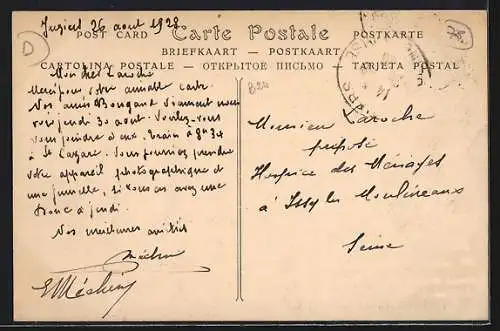 Juziers 26 aout 1928
D
POST CARD Carte Postale POSTKARTE
BRIEFKAART — POSTKAART
CARTOLINA POSTALE — ОТКРЫТОЕ ПИСЬМО — TARJETA POSTAL
Mon cher Laroche
Merci pour votre aimable carte.
Nos amis viennent nous
voir jeudi 30 aout. Voulez-vous
vous joindre à eux. train à 8h34
à St Lazare. Vous pourriez prendre
votre appareil photographique et
une jumelle, si vous en avez une
Donc à jeudi.
Nos meilleures amitiés
Méchin
EMéchin
B20
Monsieur Laroche
préposé
Hospice des Ménages
à Issy les Moulineaux
Seine